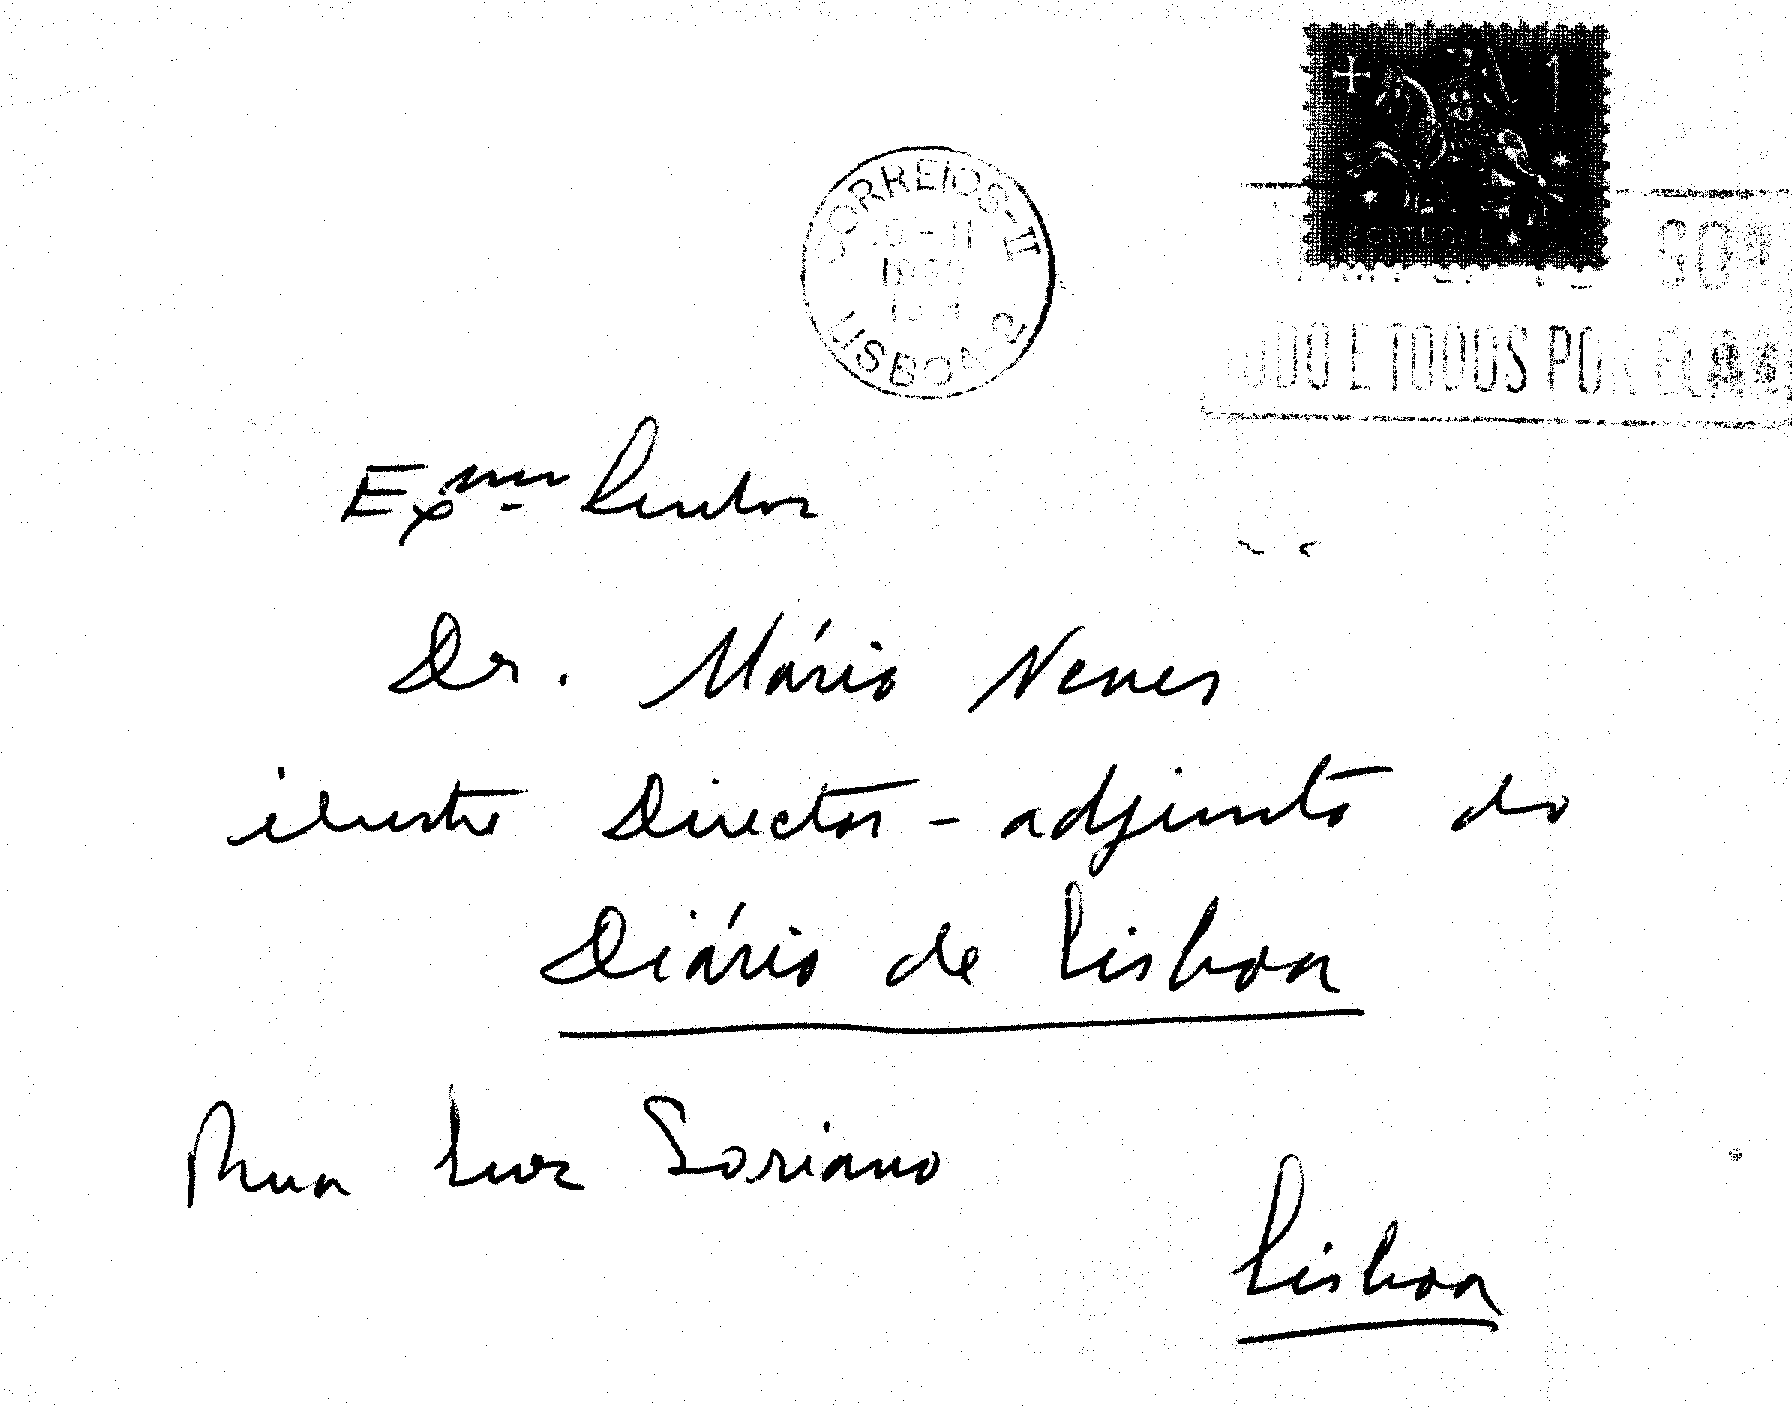 CORREIOS-II
LISBOA
SO
TODO E TODOS POR ELA
Exmo. Senhor
Dr. Mário Neves
ilustre Director-adjunto do
Diário de Lisboa
Rua Luz Soriano
Lisboa